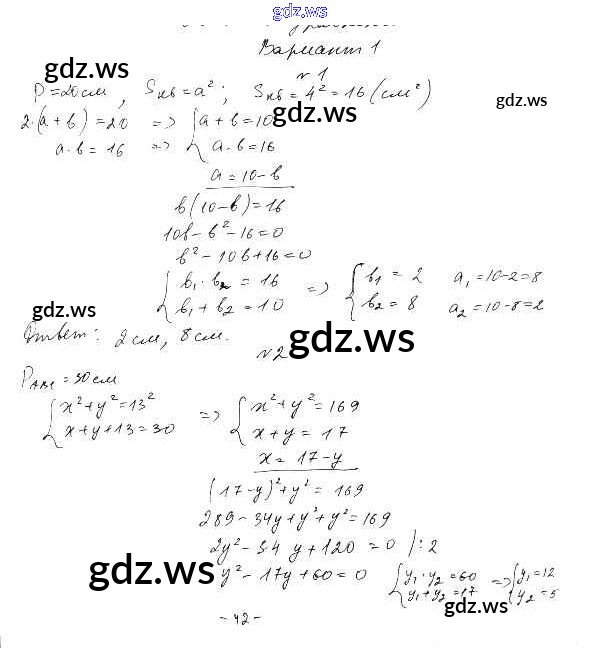 gdz.ws
Вариант 1
gdz.ws
№ 1
P = 20 см, Sкв = a²; Sкв = 4² = 16 (см²)
gdz.ws
gdz.ws
2·(a + b) = 20 => { a + b = 10
a·b = 16 => a·b = 16
a = 10 - b
b(10 - b) = 16
10b - b² - 16 = 0
b² - 10b + 16 = 0
{ b₁·b₂ = 16 => { b₁ = 2 a₁ = 10-2 = 8
b₁ + b₂ = 10 b₂ = 8 a₂ = 10-8 = 2
gdz.ws
Ответ: 2 см, 8 см.
gdz.ws
№ 2
PABC = 30 см
{ x² + y² = 13² => { x² + y² = 169
x + y + 13 = 30 x + y = 17
x = 17 - y
(17 - y)² + y² = 169
289 - 34y + y² + y² = 169
2y² - 34y + 120 = 0 /:2
gdz.ws
y² - 17y + 60 = 0 { y₁·y₂ = 60 => { y₁ = 12
y₁ + y₂ = 17 y₂ = 5
gdz.ws
- 42 -